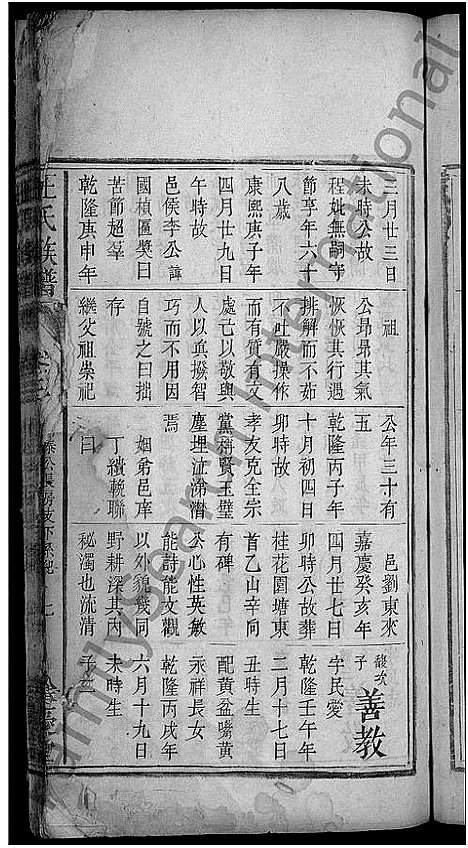 三月廿三日
未時公故
程妣無嗣守
節享年六十
八歲
康熙庚子年
四月廿九日
午時故
邑侯李公諱
國楨匾獎曰
苦節超羣
乾隆庚申年
祖
公昂昂其氣
恢恢其行遇
排解而不茹
不吐嚴操作
而有質有文
處己以敬與
人以眞撥智
巧而不用因
自號之曰拙
存
繼父祖崇祀
公年三十有
五
乾隆丙子年
十月初四日
卯時故
孝友克全宗
黨稱賢玉璧
塵埋泣淚潸
焉
姻弟邑庠
丁纘輓聯
曰
邑劉東來
嘉慶癸亥年
四月廿七日
卯時公故葬
桂花園塘東
首乙山辛向
有碑
公心性英敏
能詩能文觀
以外貌幾同
野耕深其內
秘濁也流清
馥次
子
善教
字民愛
乾隆壬午年
二月十七日
丑時生
配黃盆嘴黃
永祥長女
乾隆丙戌年
六月十九日
未時生
子三
氏族譜
卷
七
familysearch international